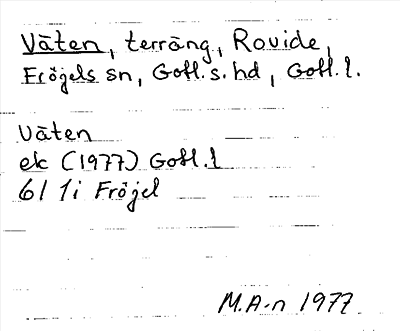 Väten, terräng, Rovide,
Fröjels sn, Gotl. s. hd, Gotl. l.
Väten
ek (1977) Gotl. l
6I 1i Fröjel
M.A-n 1977